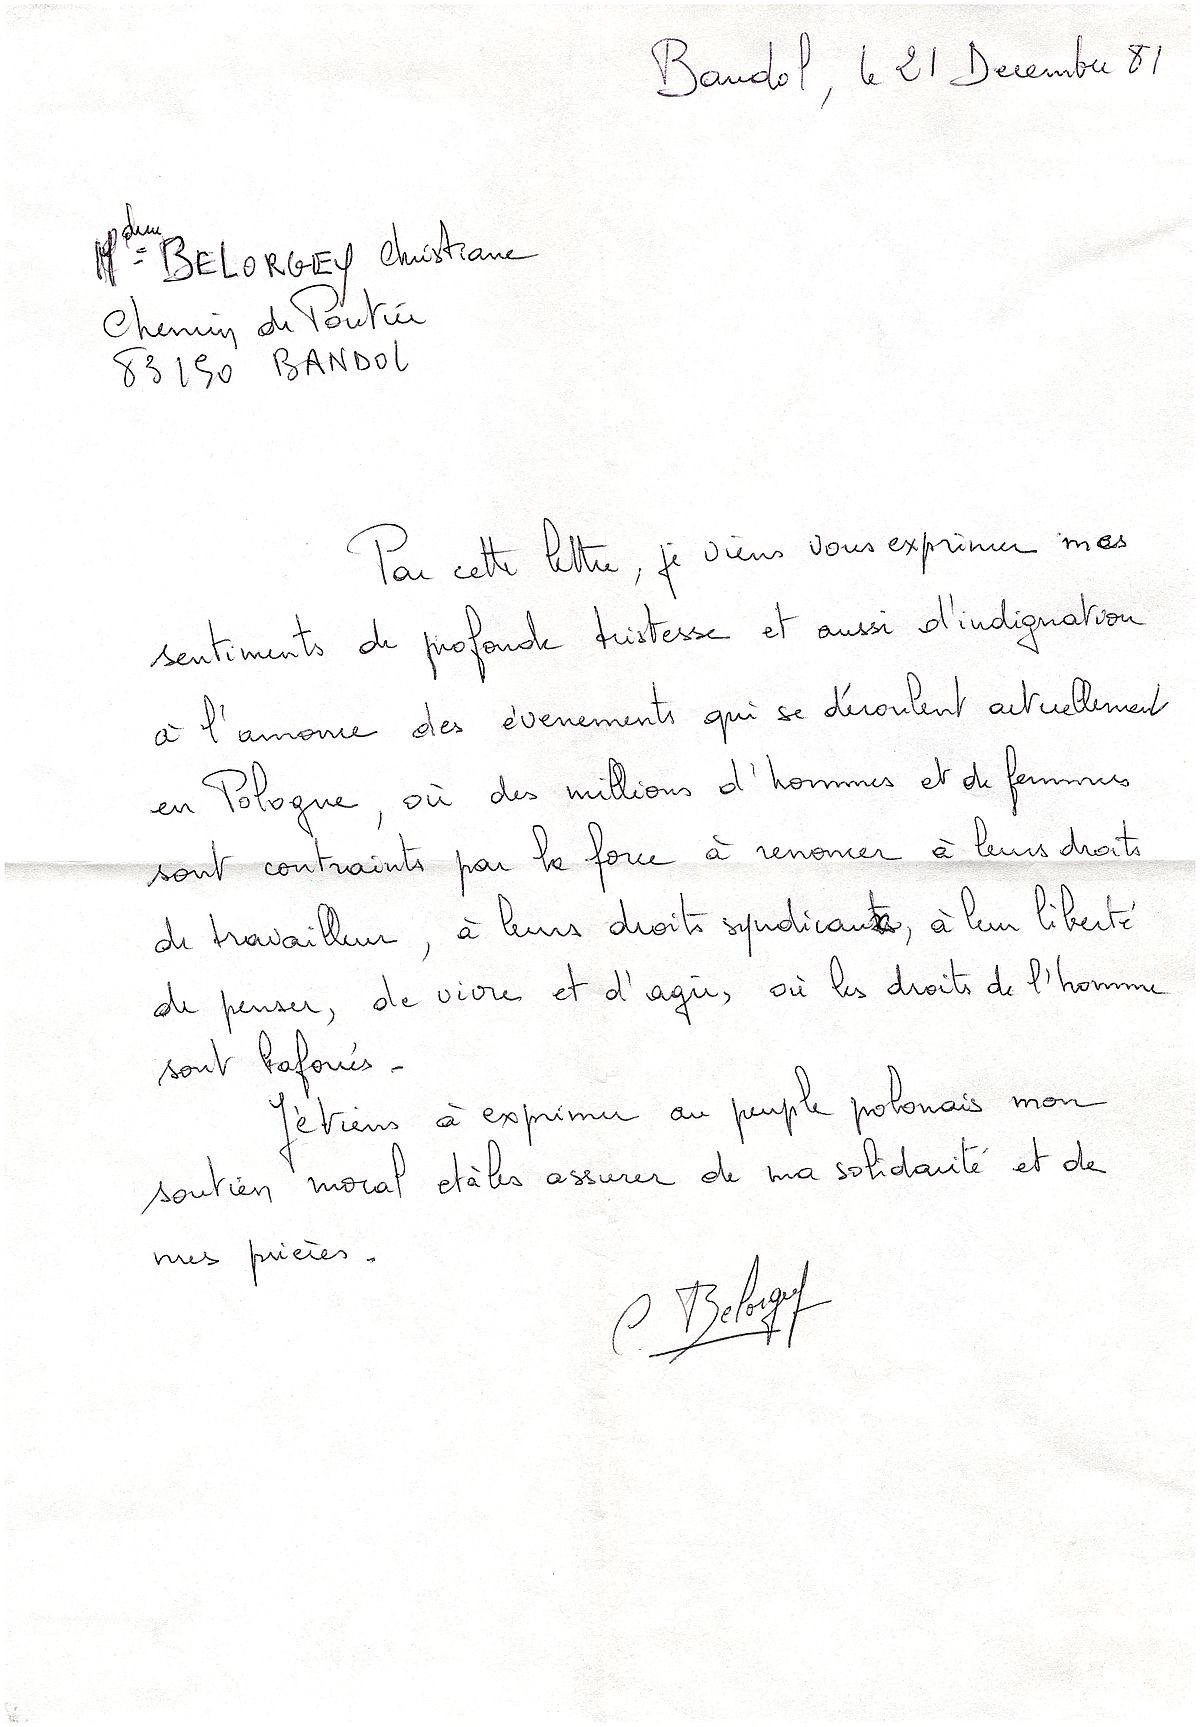 Bandol, le 21 Decembre 81
Mdme BELORGEY Christiane
Chemin de Poutier
83150 BANDOL
Par cette lettre, je viens vous exprimer mes
sentiments de profonde tristesse et aussi d'indignation
à l'annonce des évenements qui se déroulent actuellement
en Pologne, où des millions d'hommes et de femmes
sont contraints par la force à renoncer à leurs droits
de travailleur, à leurs droits syndicaux, à leur liberté
de penser, de vivre et d'agir, où les droits de l'homme
sont bafoués -
Je tiens à exprimer au peuple polonais mon
soutien moral et à les assurer de ma solidarité et de
mes prières -
C. Belorgey